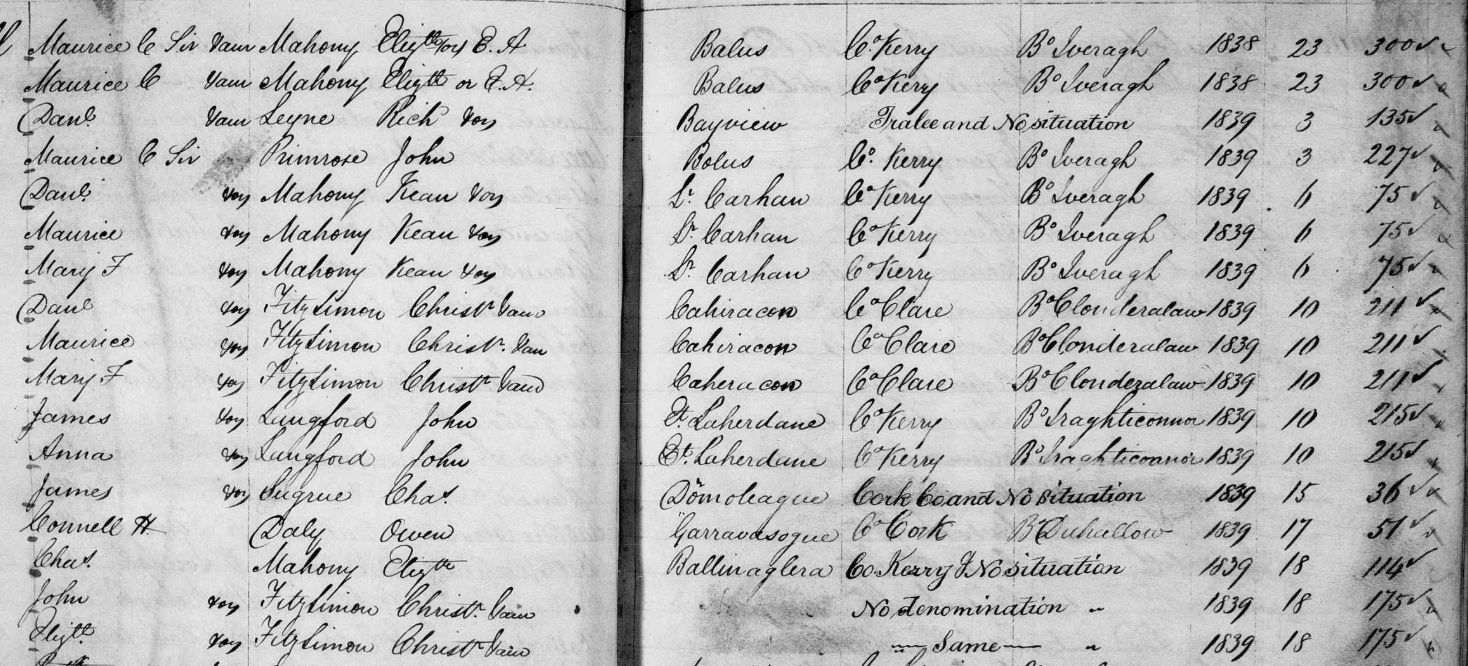 Maurice C Sir & anr Mahony Elizth & ors E. A Balus Co. Kerry Bo Iveragh 1838 23 300
Maurice C & anr Mahony Elizth or E. A. Balus Co Kerry Bo Iveragh 1838 23 300
Danl. & anr Leyne Richd & ors Bayview Tralee and No situation 1839 3 135
Maurice C Sir Primrose John Bolus Co. Kerry Bo Iveragh 1839 3 227
Danl. & ors Mahony Kean & ors Lr. Carhan Co Kerry Bo Iveragh 1839 6 75
Maurice & ors Mahony Kean & ors Lr. Carhan Co Kerry Bo Iveragh 1839 6 75
Mary F & ors Mahony Kean & ors Lr. Carhan Co Kerry Bo Iveragh 1839 6 75
Danl & ors FitzSimon Christr & anr Cahiracon Co Clare Bo Clonderalaw 1839 10 211
Maurice & ors FitzSimon Christr. & an Cahiracon Co Clare Bo Clonderalaw 1839 10 211
Mary F & ors FitzSimon Christr & anr Caheracon Co Clare Bo Clonderalaw 1839 10 211
James & ors Langford John Et. Laherdane Co Kerry Bo Iraghticonnor 1839 10 215
Anna & ors Langford John Et. Laherdane Co Kerry Bo Iraghticonnor 1839 10 215
James & ors Sugrue Chas. Domoleague Cork Co and No situation 1839 15 36
Connell H. Daly Owen Garravasogue Co Cork Bo Duhallow 1839 17 51
Chas. Mahony Elizth Ballinaglera Co Kerry & No situation 1839 18 114
John & ors FitzSimon Christr. & anr No denomination " 1839 18 175
Elizth & ors FitzSimon Christr & anr Same " 1839 18 175